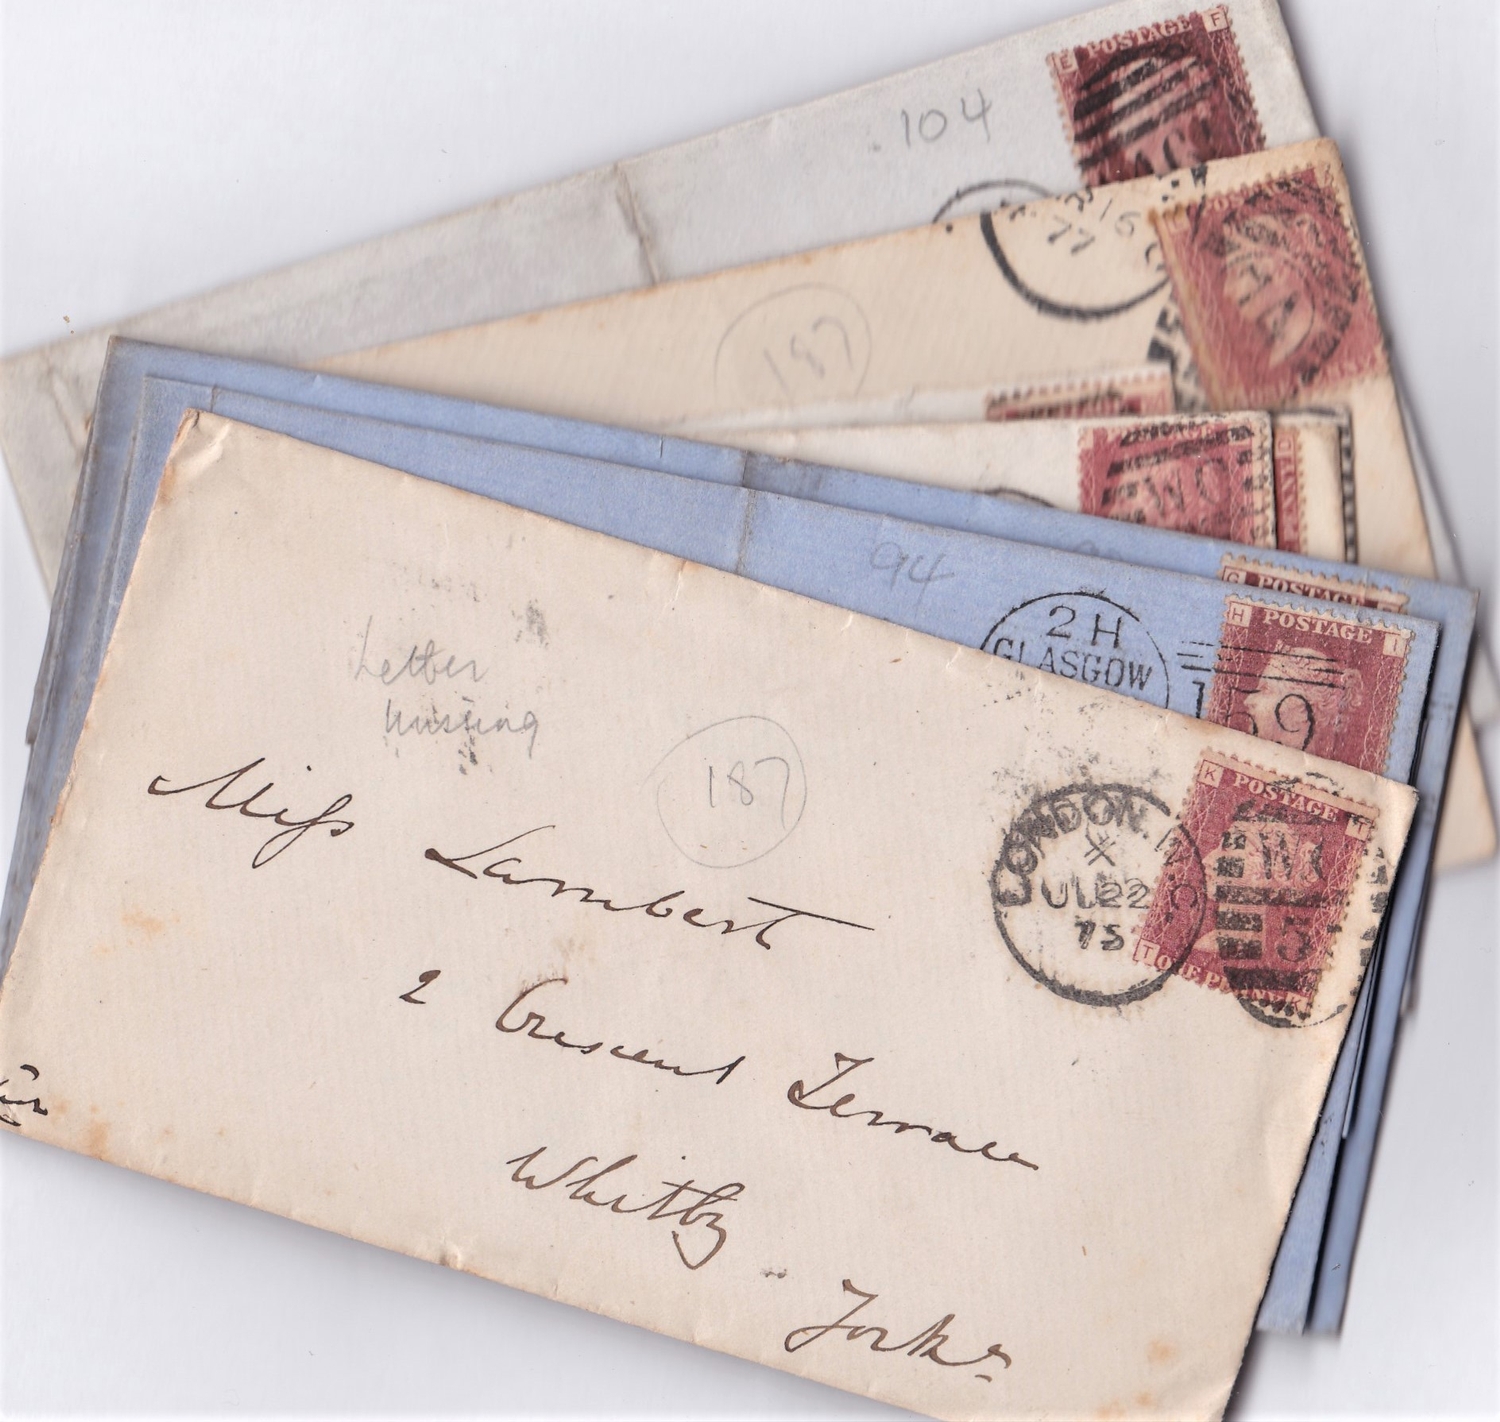 E POSTAGE F
104
16
77
187
WC
94
G POSTAGE
2 H
GLASGOW
H POSTAGE I
159
Letter
missing
187
K POSTAGE T
LONDON. W
X
JUL 22
75
WC
5
T ONE PENNY K
Miss Lambert
2 Crescent Terrace
Whitby
Yorks